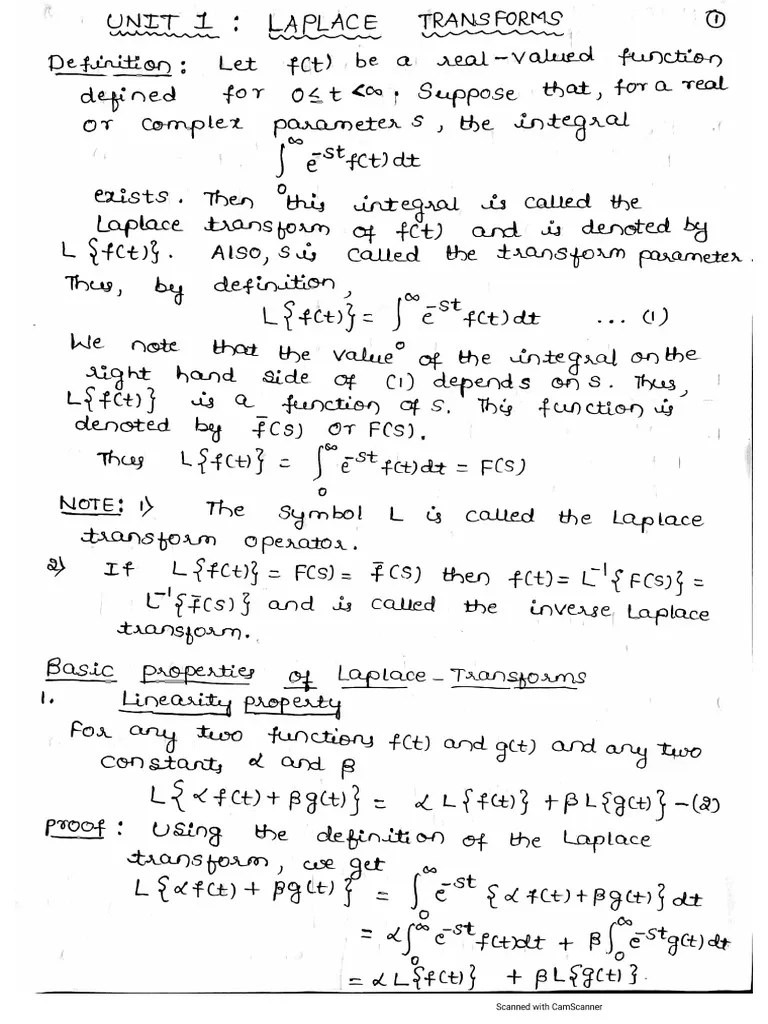 UNIT 1 : LAPLACE TRANSFORMS ①
Definition: Let f(t) be a real-valued function
defined for 0≤t<∞. Suppose that, for a real
or complex parameter s, the integral
∫₀^∞ e^-st f(t)dt
exists. Then this integral is called the
Laplace transform of f(t) and is denoted by
L{f(t)}. Also, s is called the transform parameter.
Thus, by definition,
L{f(t)} = ∫₀^∞ e^-st f(t)dt ... (1)
We note that the value of the integral on the
right hand side of (1) depends on s. Thus,
L{f(t)} is a function of s. This function is
denoted by f̄(s) or F(s).
Thus L{f(t)} = ∫₀^∞ e^-st f(t)dt = F(s)
NOTE: 1) The symbol L is called the Laplace
transform operator.
2) If L{f(t)} = F(s) = f̄(s) then f(t) = L⁻¹{F(s)} =
L⁻¹{f̄(s)} and is called the inverse Laplace
transform.
Basic properties of Laplace-Transforms
1. Linearity property
For any two functions f(t) and g(t) and any two
constants α and β
L{αf(t) + βg(t)} = αL{f(t)} + βL{g(t)} -(2)
Proof: Using the definition of the Laplace
transform, we get
L{αf(t) + βg(t)} = ∫₀^∞ e^-st {αf(t)+βg(t)}dt
= α∫₀^∞ e^-st f(t)dt + β∫₀^∞ e^-st g(t)dt
= αL{f(t)} + βL{g(t)}.
Scanned with CamScanner